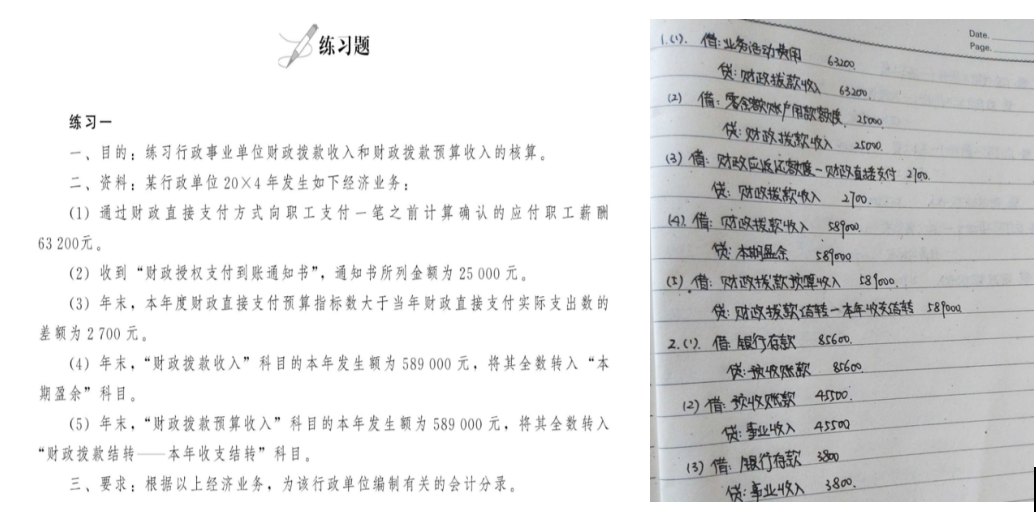 练习题
练习一
一、目的：练习行政事业单位财政拨款收入和财政拨款预算收入的核算。
二、资料：某行政单位20×4年发生如下经济业务：
（1）通过财政直接支付方式向职工支付一笔之前计算确认的应付职工薪酬
63 200元。
（2）收到“财政授权支付到账通知书”，通知书所列金额为25 000元。
（3）年末，本年度财政直接支付预算指标数大于当年财政直接支付实际支出数的
差额为2 700元。
（4）年末，“财政拨款收入”科目的本年发生额为589 000元，将其全数转入“本
期盈余”科目。
（5）年末，“财政拨款预算收入”科目的本年发生额为589 000元，将其全数转入
“财政拨款结转——本年收支结转”科目。
三、要求：根据以上经济业务，为该行政单位编制有关的会计分录。
Date.
Page.
1.(1). 借:业务活动费用 63200.
贷:财政拨款收入 63200.
(2) 借:零余额账户用款额度 25000.
贷:财政拨款收入 25000.
(3) 借:财政应返还额度-财政直接支付 2700.
贷:财政拨款收入 2700.
(4). 借:财政拨款收入 589000.
贷:本期盈余 589000
(5). 借:财政拨款预算收入 589000.
贷:财政拨款结转-本年收支结转 589000
2.(1). 借:银行存款 85600.
贷:预收账款 85600
(2) 借:预收账款 45500.
贷:事业收入 45500
(3) 借:银行存款 3800
贷:事业收入 3800.